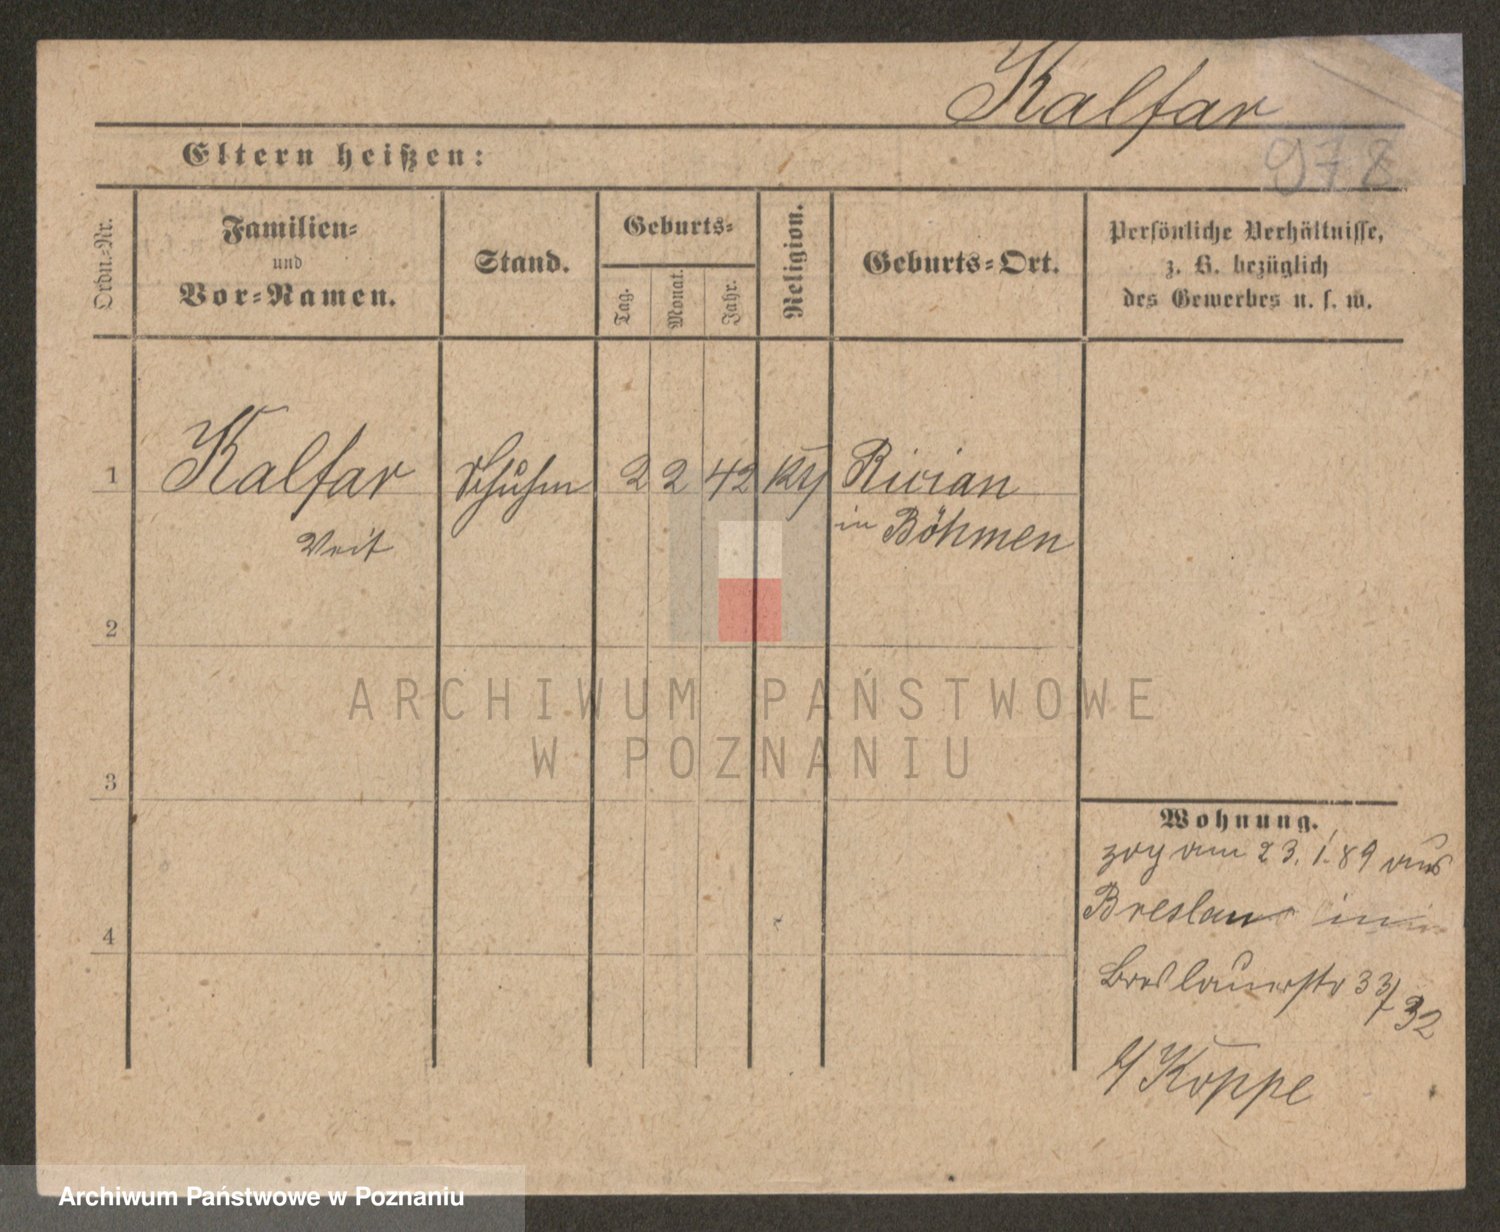 Kalfar
978
Eltern heißen:
Ordn.-Nr.
Familien-
und
Vor-Namen.
Stand.
Geburts-
Tag.
Monat.
Jahr.
Religion.
Geburts-Ort.
Persönliche Verhältnisse,
z. B. bezüglich
des Gewerbes u. s. w.
1 Kalfar Schuhm 2 2 42 Rician
Veit in Böhmen
2
3
4
Wohnung.
zog am 23. 1. 89 aus
Breslau
Breslauerstr 33/32
b/ Koppe
ARCHIWUM PAŃSTWOWE
W POZNANIU
Archiwum Państwowe w Poznaniu